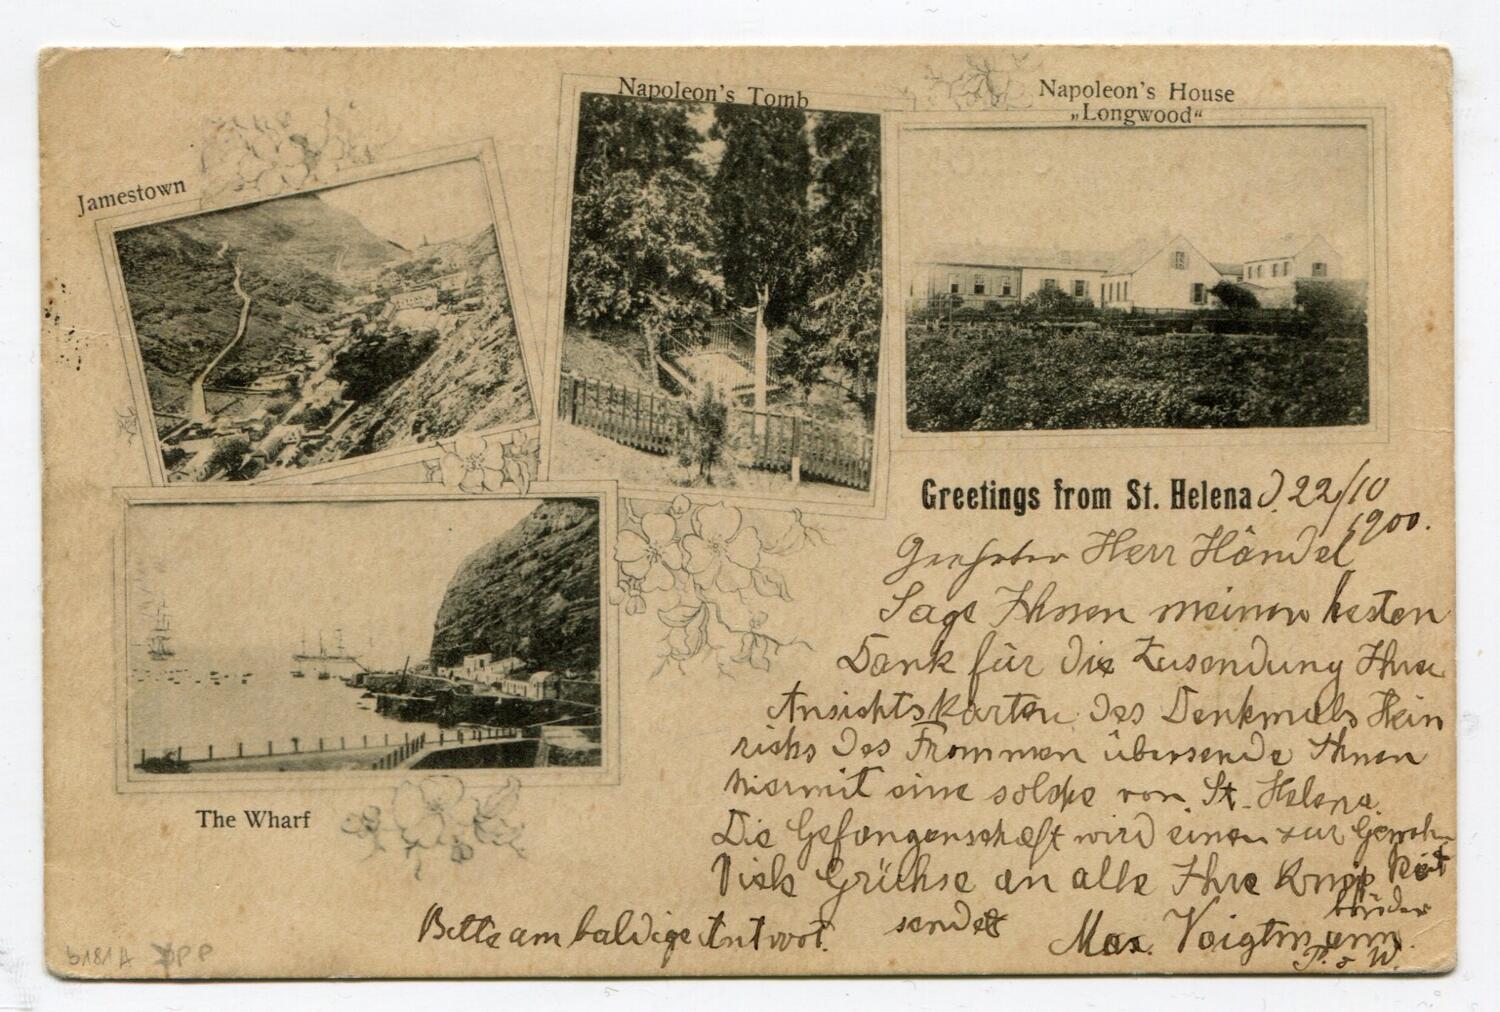 Napoleon's Tomb
Napoleon's House
„Longwood“
Jamestown
The Wharf
Greetings from St. Helena d. 22/10
1900.
Geehrter Herr Händel
Sage Ihnen meinen besten
Dank für die Zusendung Ihrer
Ansichtskarten des Denkmals Hein
richs des Frommen übersende Ihnen
hiermit eine solche von St. Helena.
Die Gefangenschaft wird einen zur Gewohn
keit
Viele Grühse an alle Ihre Kneipp
brüder
sendet
Bitte am baldige Antwort.
Max Voigtmann.
P. o W.
b181A